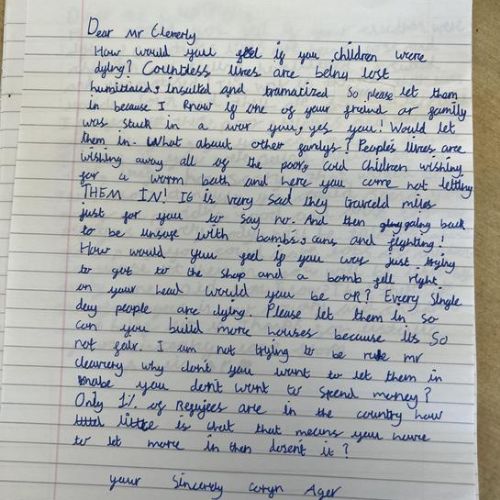 Dear Mr Cleverly
How would you feel if you children were
dying? Countless lives are being lost
humiliaed, insulted and tramatized So please let them
in because I know if one of your freind or family
was stuck in a war you, yes you! Would let
them in. What about other familys? People's lives are
wishing away all of the poor, cold children wishing
for a worm bath and here you come not letting
THEM IN! It is very sad they traveled miles
just for you to say no. And then going back
to be unsafe with bombs, guns and fighting!
How would you feel if you was just trying
to get to the shop and a bomb fell right
on your head would you be OK? Every single
day people are dying. Please let them in so
can you build more houses because its So
not fair. I am not trying to be rude mr
cleaverly why don't you want to let them in
mabe you don't want to spend money?
Only 1% of Refujees are in the country how
little is that that means you have
to let more in then dosent it?
your Sincerly Ager